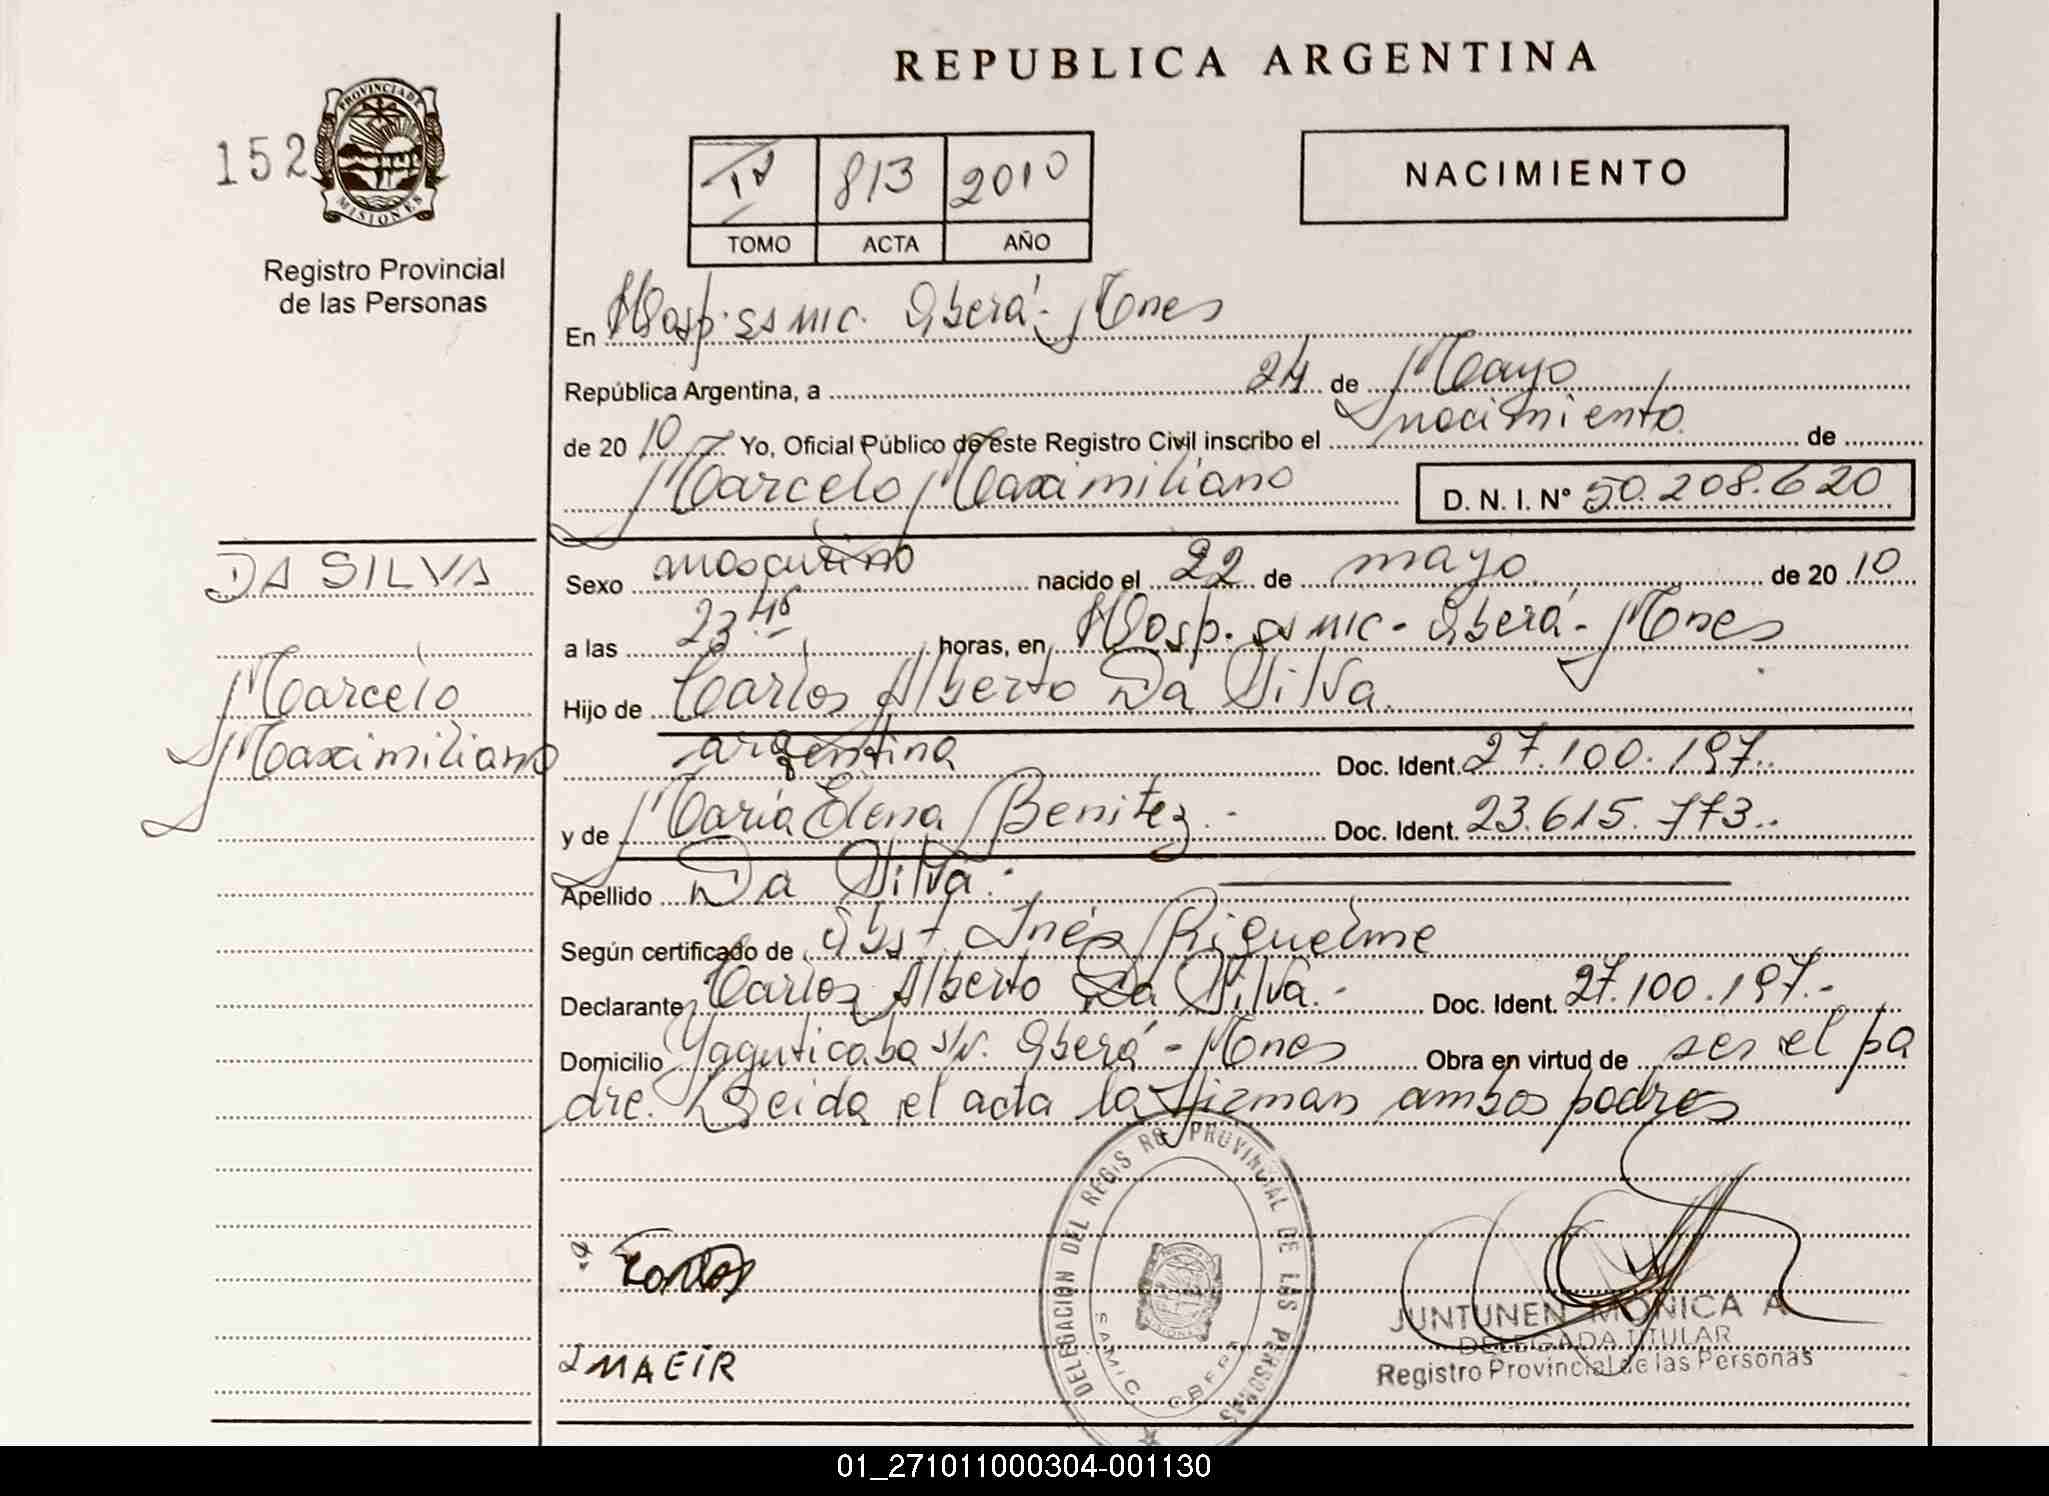 REPUBLICA ARGENTINA
152
PROVINCIA DE
MISIONES
Registro Provincial
de las Personas
813 2010
TOMO ACTA AÑO
NACIMIENTO
En Hosp. SAMIC. Oberá - Mnes
República Argentina, a 24 de Mayo
de 20 10 Yo, Oficial Público de este Registro Civil inscribo el nacimiento de
Marcelo Maximiliano D. N. I. Nº 50.208.620
DA SILVA
Marcelo
Maximiliano
Sexo masculino nacido el 22 de mayo de 20 10
a las 23 horas, en Hosp. SAMIC - Oberá - Mnes
Hijo de Carlos Alberto Da Silva
argentina Doc. Ident. 27.100.197.
y de María Elena Benitez.- Doc. Ident. 23.615.773..
Apellido Da Silva.-
Según certificado de Obst. Inés Riquelme
Declarante Carlos Alberto Da Silva.- Doc. Ident. 27.100.197.-
Domicilio Yaguticaba s/n. Oberá - Mnes Obra en virtud de ser el pa
dre. Leida el acta la firman ambos padres
DELEGACION DEL REGIS RO PROVINCIAL DE LAS PERSONAS
SAMIC OBERA
JUNTUNEN MONICA A
DELEGADA TITULAR
Registro Provincial de las Personas
01_271011000304-001130